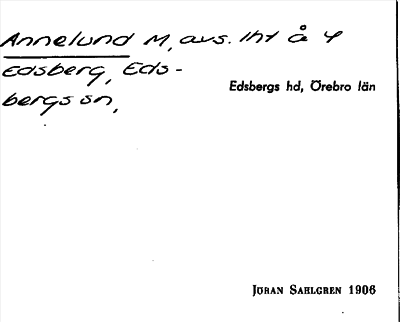 Annelund M, avs. lht å 4
Edsberg, Eds-
bergs sn,
Edsbergs hd, Örebro län
Jöran Sahlgren 1906